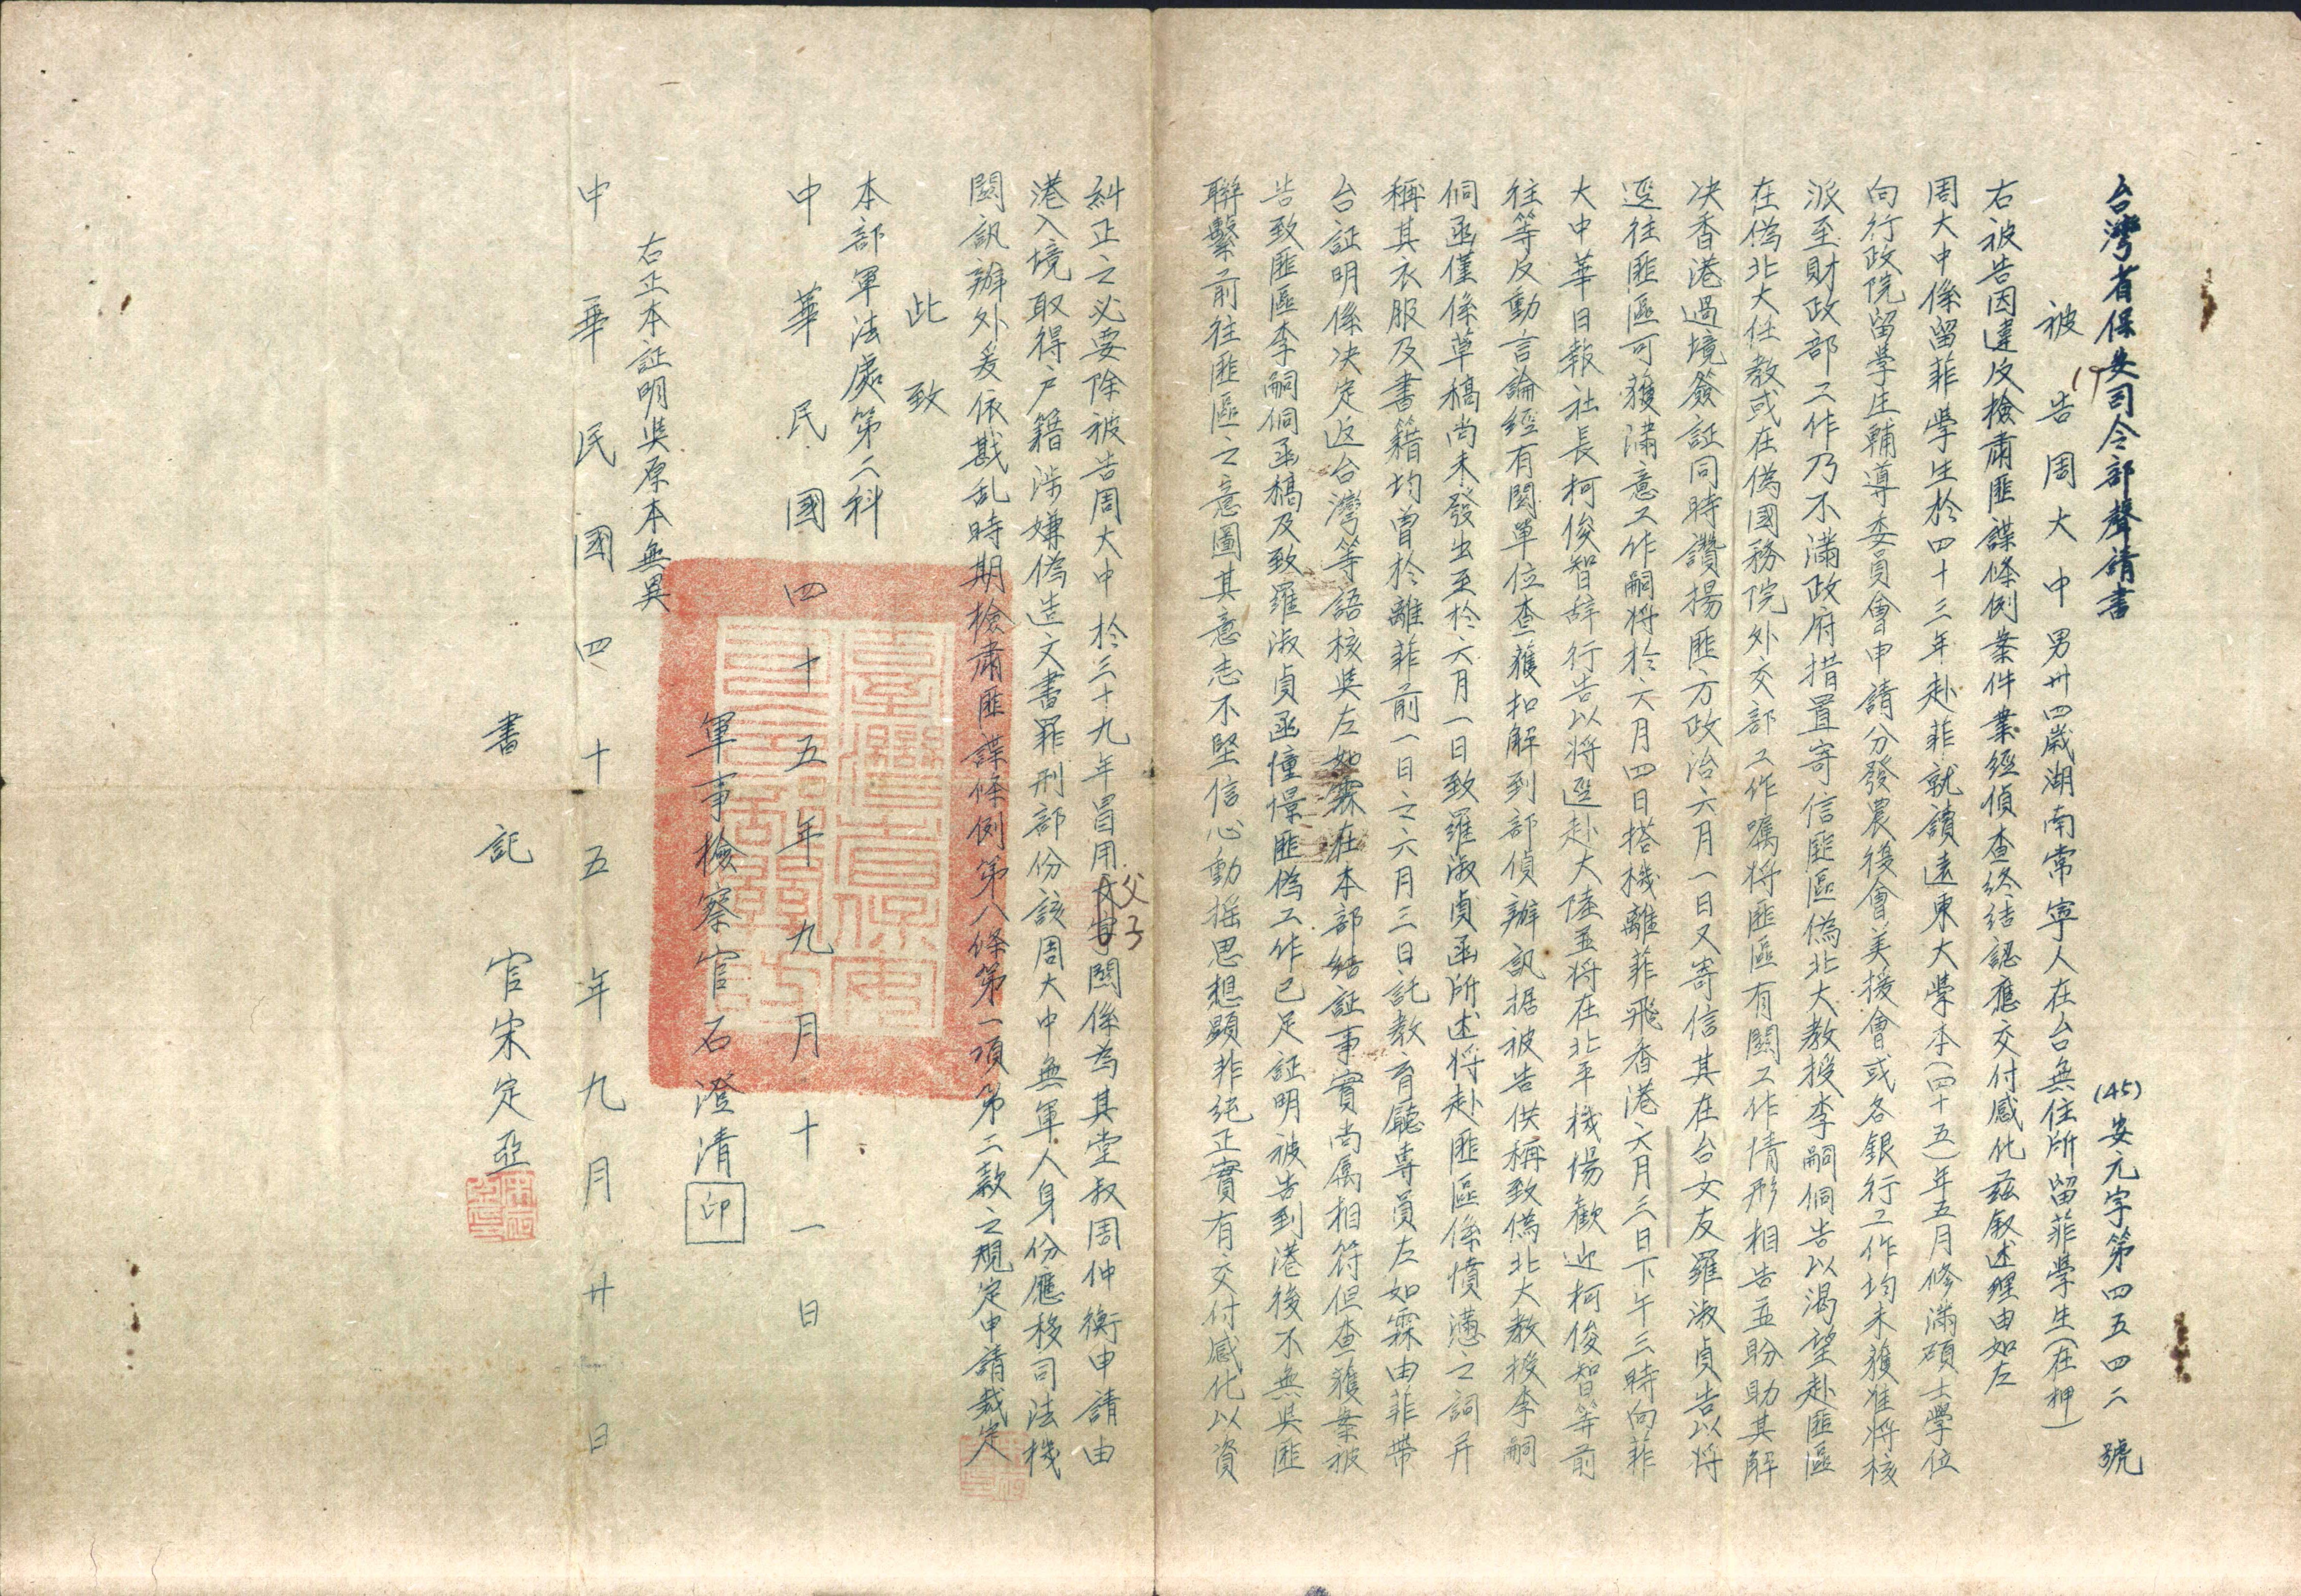 台灣省保安司令部聲請書
(45)安元字第四五四二號
被告周大中男卅四歲湖南常寧人在台無住所留菲學生(在押)
右被告因違反檢肅匪諜條例案件業經偵查終結認應交付感化茲叙述理由如左
周大中係留菲學生於四十三年赴菲就讀遠東大學本(四十五)年五月修滿碩士學位
向行政院留學生輔導委員會申請分發農復會美援會或各銀行工作均未獲准將核
派至財政部工作乃不滿政府措置寄信匪區偽北大教授李嗣侗告以渴望赴匪區
在偽北大任教或在偽國務院外交部工作囑將匪區有關工作情形相告並盼助其解
决香港過境簽証同時讚揚匪方政治六月一日又寄信其在台女友羅淑貞告以將
逕往匪區可獲滿意工作嗣將於六月四日搭機離菲飛香港六月三日下午三時向菲
大中華日報社長柯俊智辞行告以将逕赴大陸並将在北平機場歡迎柯俊智等前
往等反動言論經有関單位查獲扣解到部偵辦訊据被告供稱致偽北大教授李嗣
侗函僅係草稿尚未發出至於六月一日致羅淑貞函所述将赴匪區係憤懣之詞并
稱其衣服及書籍均曾於離菲前一日之六月三日託教育廳專員左如霖由菲帶
台証明係决定返台灣等語核與左如霖在本部結証事實尚属相符但查獲案被
告致匪區李嗣侗函稿及致羅淑貞函憧憬匪偽工作已足証明被告到港後不無與匪
聯繫前往匪區之意圖其意志不堅信心動搖思想顕非純正實有交付感化以資
糾正之必要除被告周大中於三十九年冒用父子関係為其堂叔周仲衡申請由
港入境取得户籍涉嫌偽造文書罪刑部份該周大中無軍人身份應移司法機
関訊辦外爰依戡乱時期檢肅匪諜條例第八條第一項第二款之規定申請裁定
此致
本部軍法處第二科
中華民國四十五年九月十一日
軍事檢察官石澄清 印
右正本証明與原本無異
中華民國四十五年九月廿日
書記官宋定亞